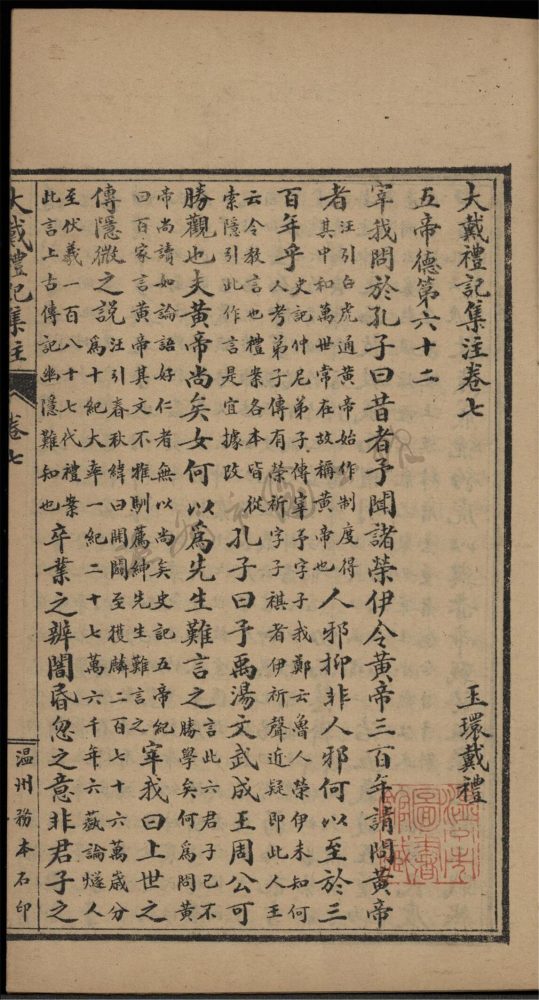 大戴禮記集注卷七
玉環戴禮
五帝德第六十二
宰我問於孔子曰昔者予聞諸榮伊令黃帝三百年請問黃帝
者
汪引白虎通黃帝始作制度得
其中和萬世常在故稱黃帝也
人邪抑非人邪何以至於三
百年乎
史記仲尼弟子傳宰予字子我鄭云魯人榮伊未知何
人考弟子傳有榮祈字子祺者伊祈聲近疑即此人王
云令教言也禮案各本皆從
索隱引此作言是宜據改
孔子曰予禹湯文武成王周公可
勝觀也夫黃帝尚矣女何以爲先生難言之
言此六君子已不
勝學矣何爲問黃
帝尚讀如論語好仁者無以尚矣史記五帝紀
曰百家言黃帝其文不雅馴薦紳先生難言之
宰我曰上世之
傳隱微之說
汪引春秋緯曰開闢至獲麟二百七十六萬歲分
爲十紀大率一紀二十七萬六千年六蓺論燧人
至伏羲一百八十七代禮案
此言上古傳記幽隱難知也
卒業之辨闇昏忽之意非君子之
大戴禮記集注
卷七
温州務本石印